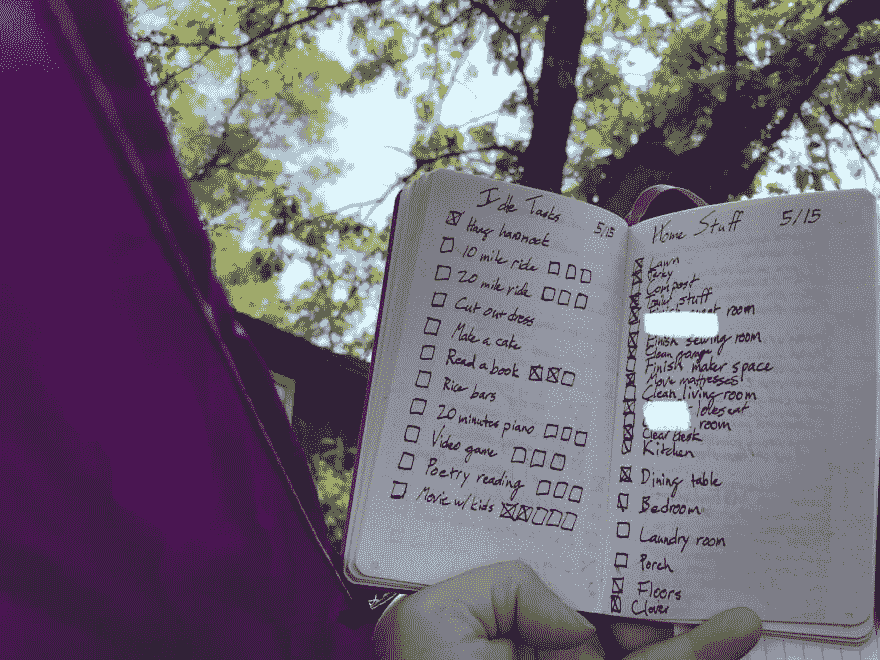 Idle Tasks 5/15
Hang hammock
10 mile ride
20 mile ride
Cut out dress
Make a cake
Read a book
Rice bars
20 minutes piano
Video game
Poetry reading
Movie w/kids
Home Stuff 5/15
Lawn
Compost
stuff
room
Finish sewing room
Clean
Finish maker space
Move mattresses
Clean living room
loveseat
room
Clear desk
Kitchen
Dining table
Bedroom
Laundry room
Porch
Floors
Clover